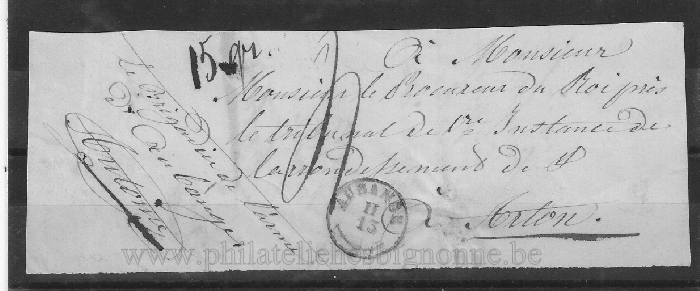 15 gr.
A Monsieur
Monsieur le Procureur du Roi près
le tribunal de 1re Instance de
l'arrondissement de
à Arlon.
le Brigadier de
Antoine
AUBANGE
11
13
www.philateliehesbignonne.be